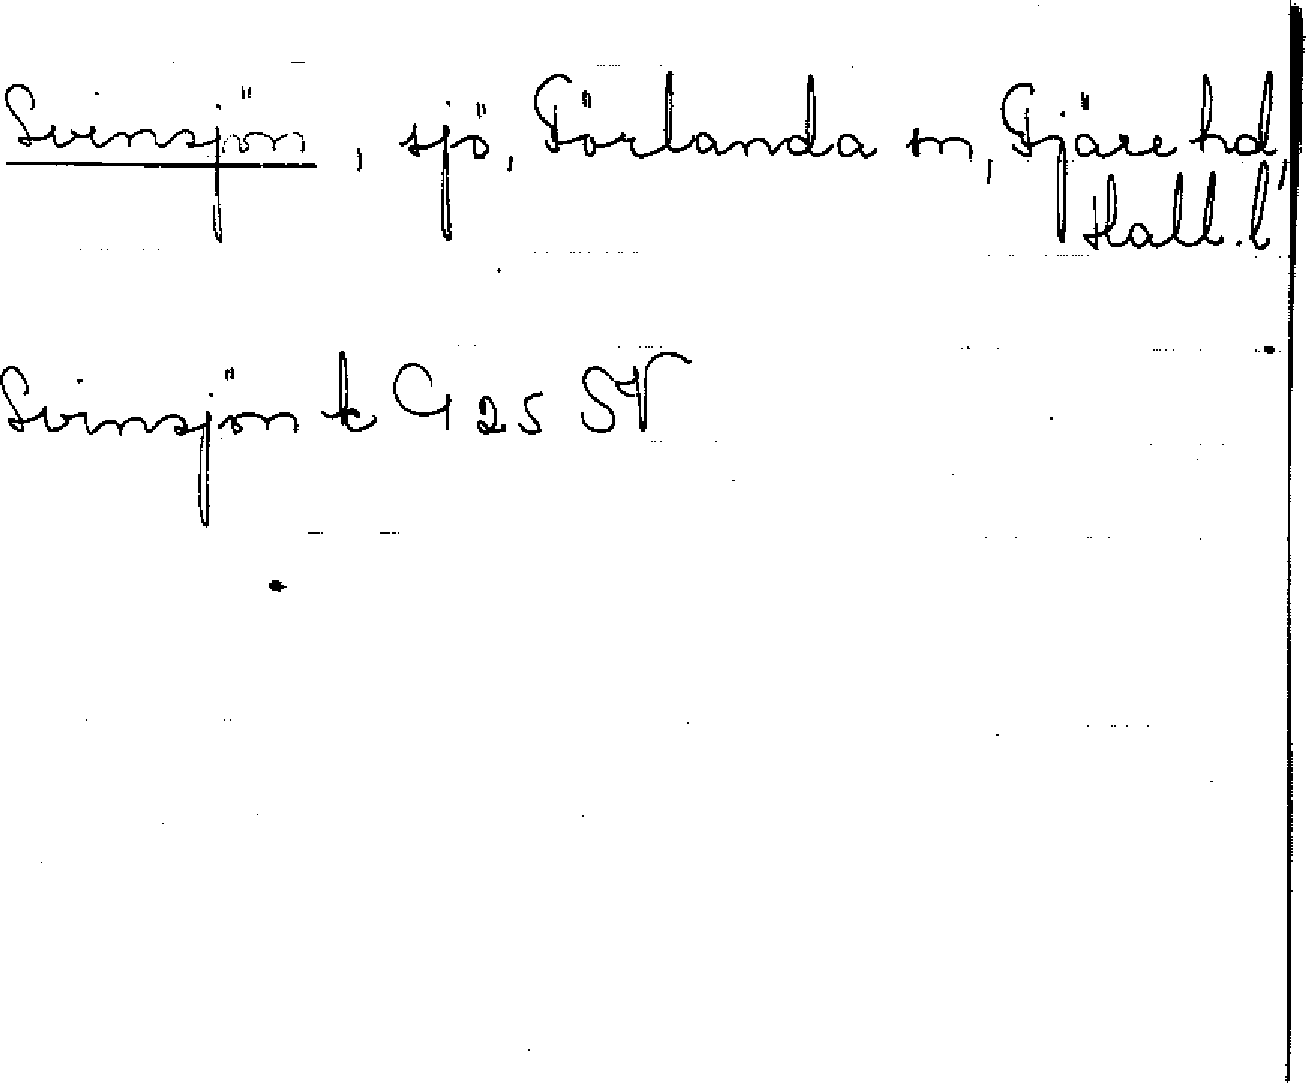 Svinsjön, sjö, Förlanda sn, Fjäre hd,
Hall. l
Svinsjön k G 25 SV